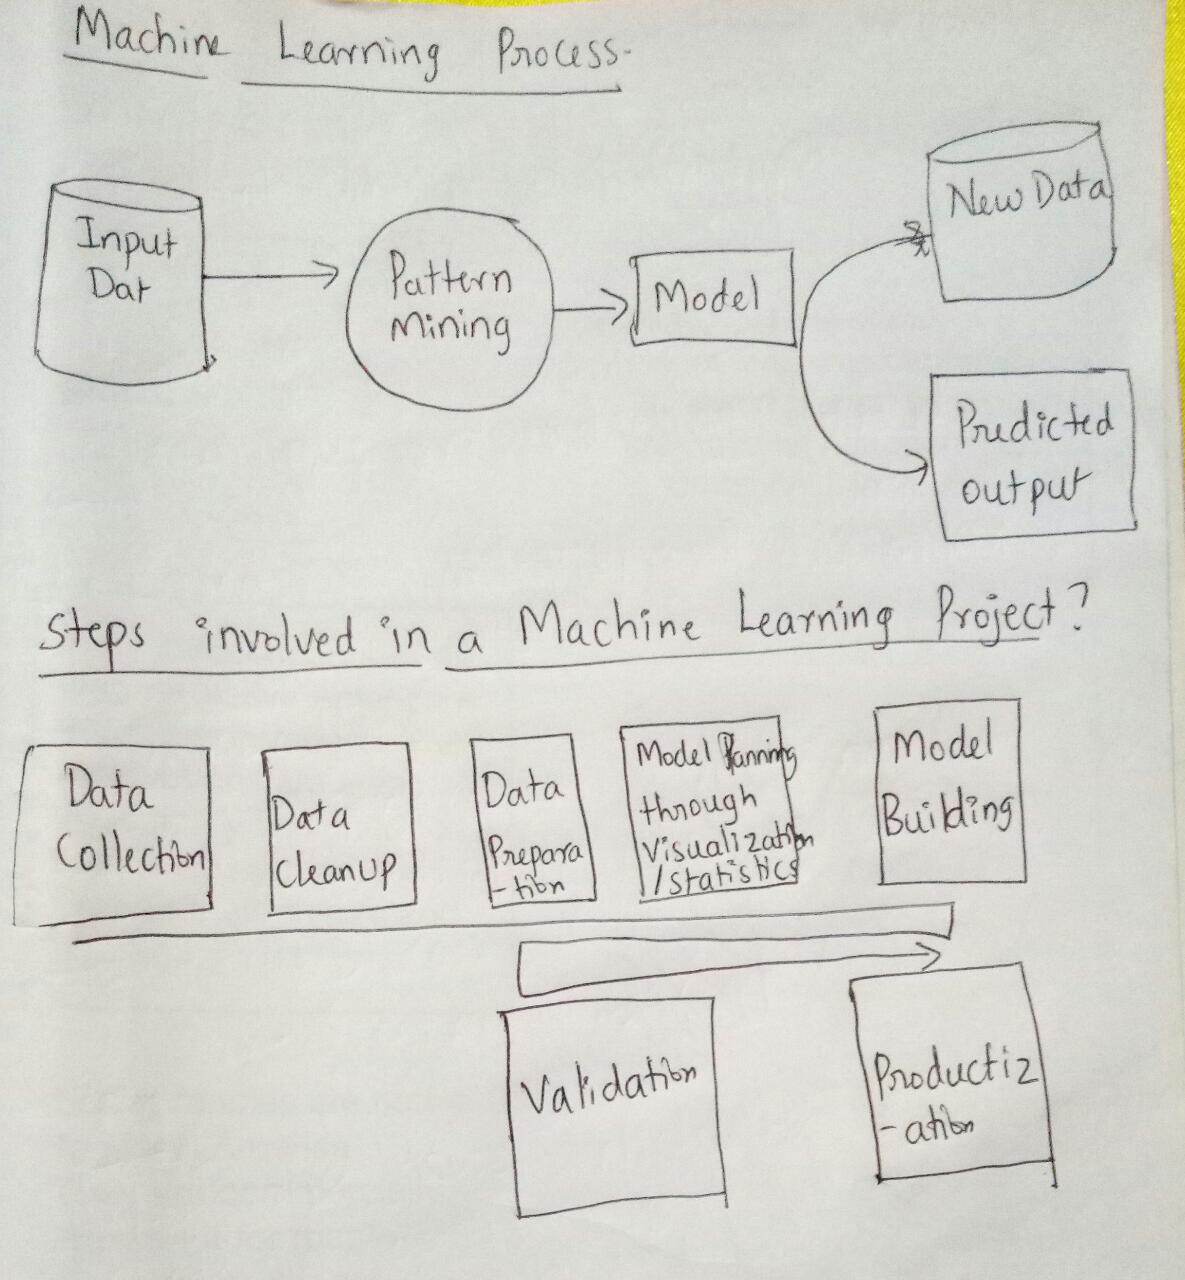 Machine Learning Process.
Input
Dat
Pattern
Mining
Model
New Data
Predicted
output
Steps involved in a Machine Learning Project?
Data
Collection
Data
Cleanup
Data
Prepara
-tion
Model Planning
through
Visualization
/statistics
Model
Building
Validation
Productiz
-ation